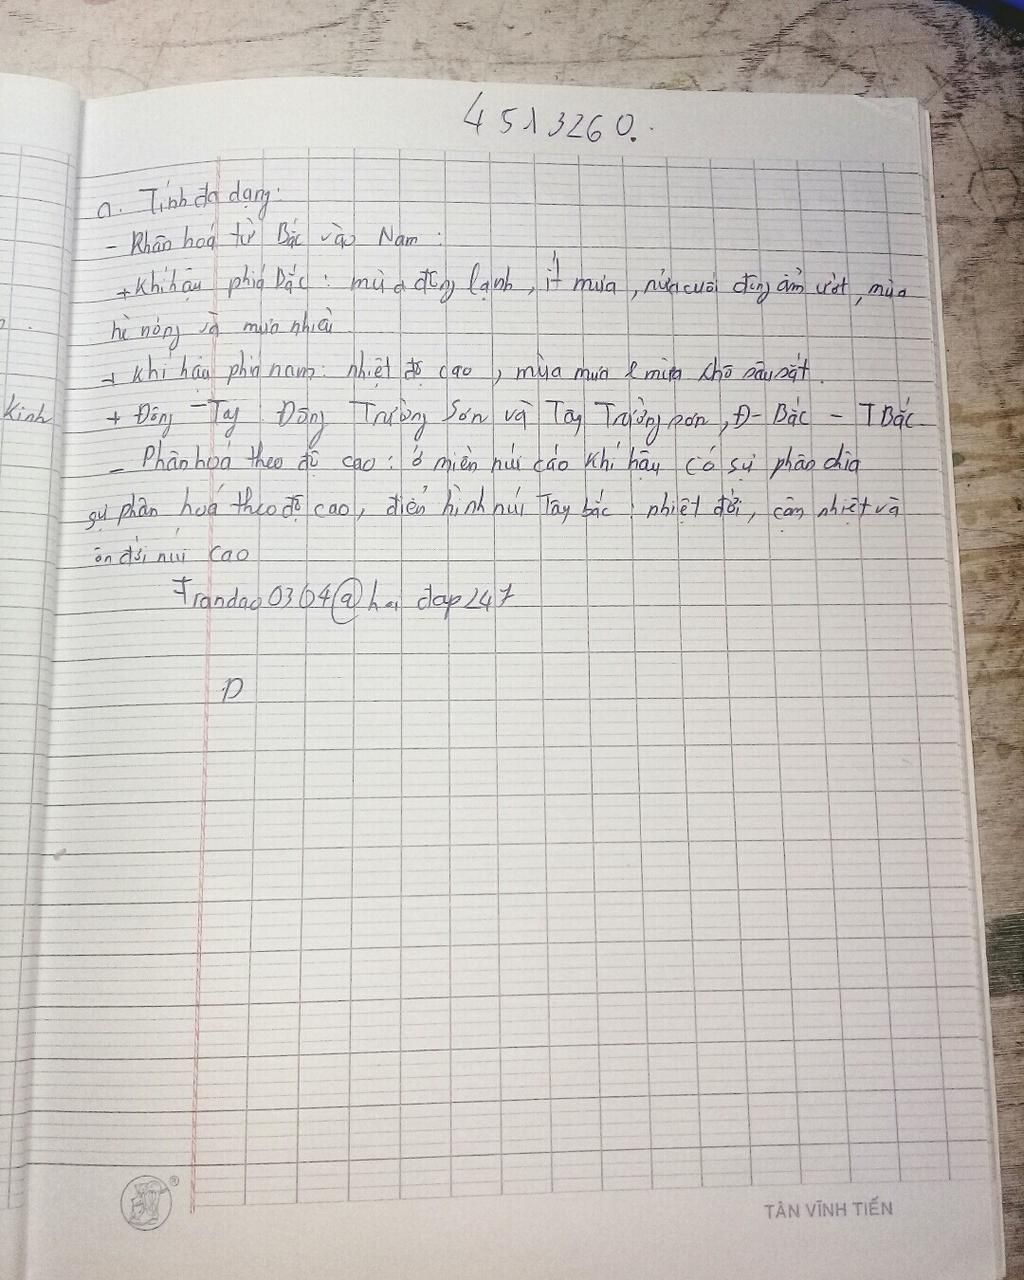 4513260.
a. Tính đa dạng:
- Phân hoá từ Bắc vào Nam:
+ Khí hậu phía Bắc: mùa đông lạnh, ít mưa, nửa cuối đông ẩm ướt, mùa
hè nóng và mưa nhiều
+ khí hậu phía nam: nhiệt độ cao, mùa mưa & mùa khô sâu sắt.
Kinh
+ Đông - Tây Đông Trường Sơn và Tây Trường sơn, Đ- Bắc - T Bắc
- Phân hoá theo độ cao: ở miền núi cáo khí hậu có sự phân chia
sự phân hoá theo độ cao, điển hình núi Tây bắc: nhiệt đới, cận nhiệt và
ôn đới núi cao
Trandao0304@hoi dap247
D
TÂN VĨNH TIẾN